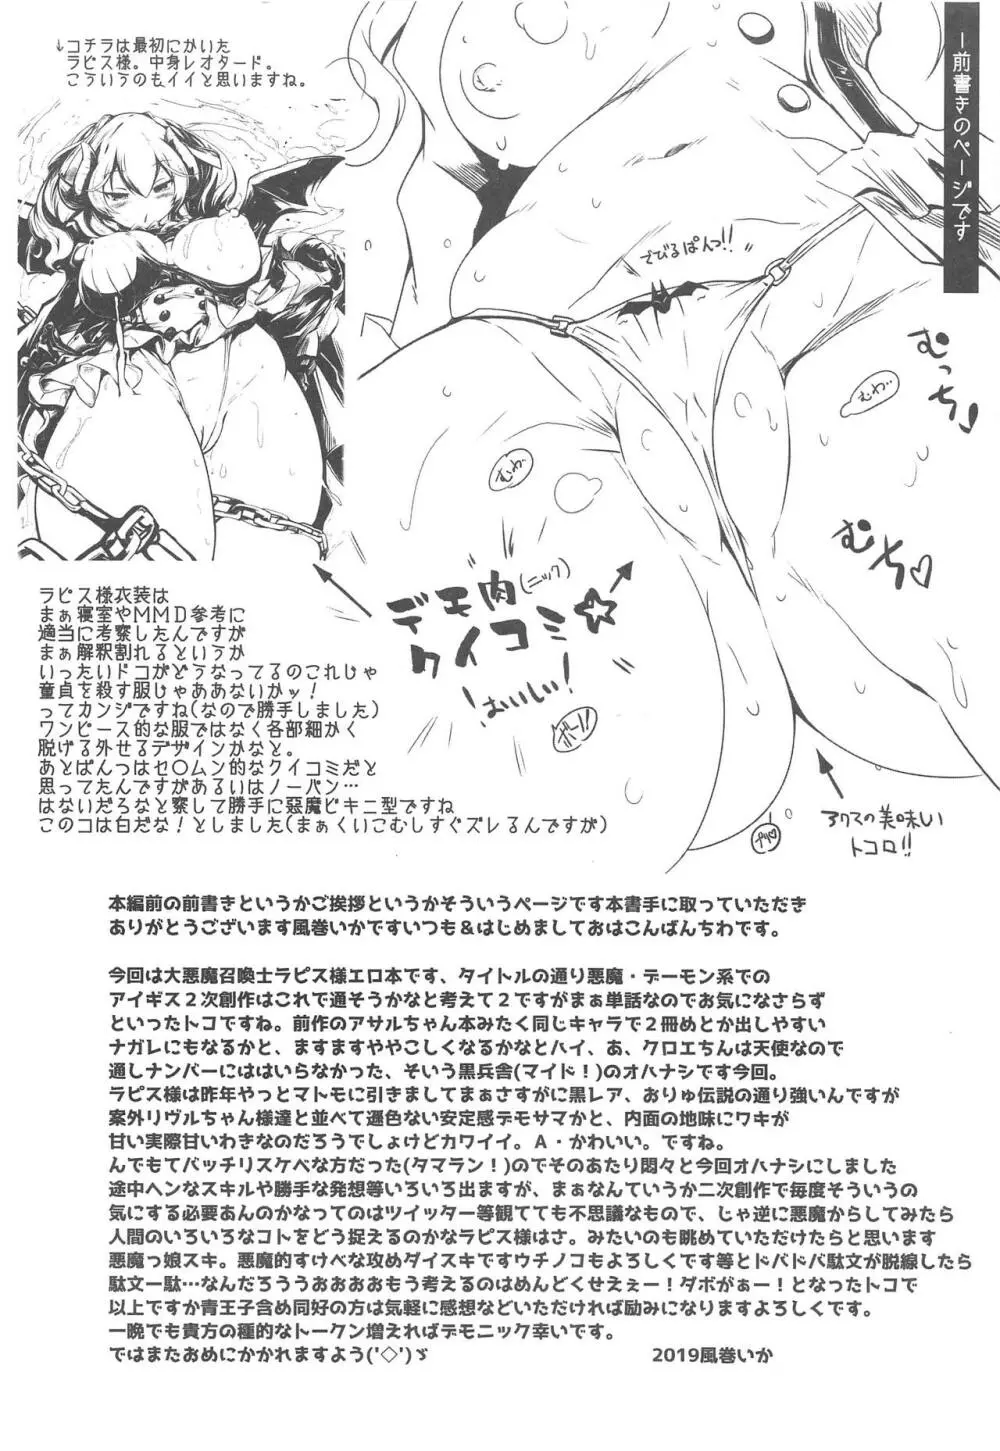 ー前書きのページです
↓コチラは最初にかいた
ラピス様。中身レオタード。
こういうのもイイと思いますね。
でびるぱんつ!!
むっち♪
むわ
むわ
むち♡
デモ肉(ニック)
クイコミ☆
おいしい!
アクマの美味い
トコロ!!
ラピス様衣装は
まぁ寝室やMMD参考に
適当に考察したんですが
まぁ解釈割れるというか
いったいドコがどうなってるのこれじゃ
童貞を殺す服じゃああないかッ!
ってカンジですね(なので勝手しました)
ワンピース的な服ではなく各部細かく
脱げる外せるデザインかなと。
あとぱんつはセ〇ムン的なクイコミだと
思ってたんですがあるいはノーパン…
はないだろなと察して勝手に惡魔ビキニ型ですね
このコは白だな!としました(まぁくいこむしすぐズレるんですが)
本編前の前書きというかご挨拶というかそういうページです本書手に取っていただき
ありがとうございます風巻いかですいつも＆はじめましておはこんばんちわです。
今回は大悪魔召喚士ラピス様エロ本です、タイトルの通り悪魔・デーモン系での
アイギス２次創作はこれで通そうかなと考えて２ですがまぁ単話なのでお気になさらず
といったトコですね。前作のアサルちゃん本みたく同じキャラで２冊めとか出しやすい
ナガレにもなるかと、ますますややこしくなるかなとハイ、あ、クロエちんは天使なので
通しナンバーにははいらなかった、そいう黒兵舎(マイド!)のオハナシです今回。
ラピス様は昨年やっとマトモに引きましてまぁさすがに黒レア、おりゅ伝説の通り強いんですが
案外リヴルちゃん様達と並べて遜色ない安定感デモサマかと、内面の地味にワキが
甘い実際甘いわきなのだろうでしょけどカワイイ。A・かわいい。ですね。
んでもてバッチリスケベな方だった(タマラン!)のでそのあたり悶々と今回オハナシにしました
途中ヘンなスキルや勝手な発想等いろいろ出ますが、まぁなんていうか二次創作で毎度そういうの
気にする必要あんのかなってのはツイッター等観てても不思議なもので、じゃ逆に悪魔からしてみたら
人間のいろいろなコトをどう捉えるのかなラピス様はさ。みたいのも眺めていただけたらと思います
悪魔っ娘スキ。悪魔的すけべな攻めダイスキですウチノコもよろしくです等とドバドバ駄文が脱線したら
駄文一駄…なんだろううおおおおもう考えるのはめんどくせえぇー!ダボがぁー!となったトコで
以上ですか青王子含め同好の方は気軽に感想などいただければ励みになりますよろしくです。
一晩でも貴方の種的なトークン増えればデモニック幸いです。
ではまたおめにかかれますよう('◇')ゞ
2019風巻いか